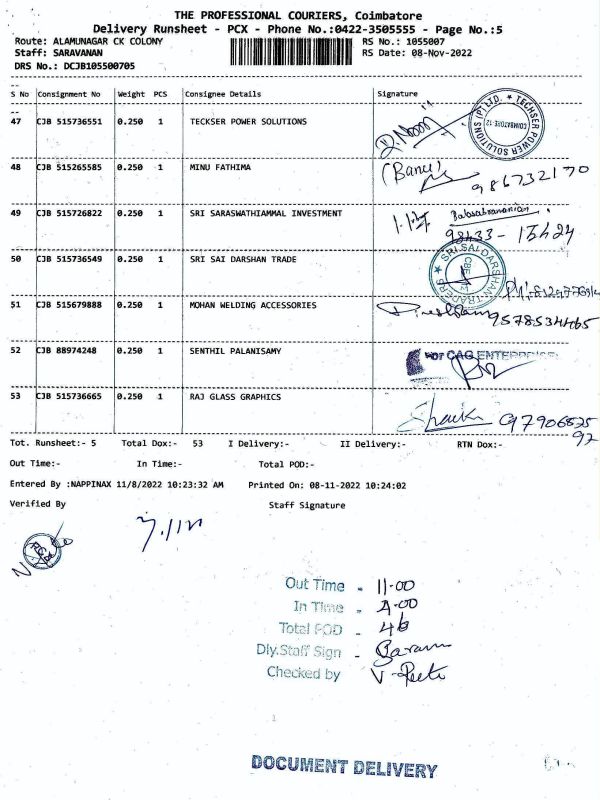 THE PROFESSIONAL COURIERS, Coimbatore
Delivery Runsheet - PCX - Phone No.:0422-3505555 - Page No.:5
Route: ALAMUNAGAR CK COLONY RS No.: 1055007
Staff: SARAVANAN RS Date: 08-Nov-2022
DRS No.: DCJB105500705
S No Consignment No Weight PCS Consignee Details Signature
47 CJB 515736551 0.250 1 TECKSER POWER SOLUTIONS
TECHSER POWER SOLUTIONS (P) LTD. COIMBATORE-12
48 CJB 515265585 0.250 1 MINU FATHIMA (Banu)
986732170
49 CJB 515726822 0.250 1 SRI SARASWATHIAMMAL INVESTMENT Balasubramanian
50 CJB 515736549 0.250 1 SRI SAI DARSHAN TRADE
SRI SAI DARSHAN TRADERS CBE
51 CJB 515679888 0.250 1 MOHAN WELDING ACCESSORIES
9578534465
52 CJB 88974248 0.250 1 SENTHIL PALANISAMY
For CAG ENTERPRISES
53 CJB 515736665 0.250 1 RAJ GLASS GRAPHICS
Tot. Runsheet:- 5 Total Dox:- 53 I Delivery:- II Delivery:- RTN Dox:-
Out Time:- In Time:- Total POD:-
Entered By :NAPPINAX 11/8/2022 10:23:32 AM Printed On: 08-11-2022 10:24:02
Verified By Staff Signature
Out Time - 11-00
In Time - 4-00
Total POD - 46
Dly.Staff Sign -
Checked by
DOCUMENT DELIVERY